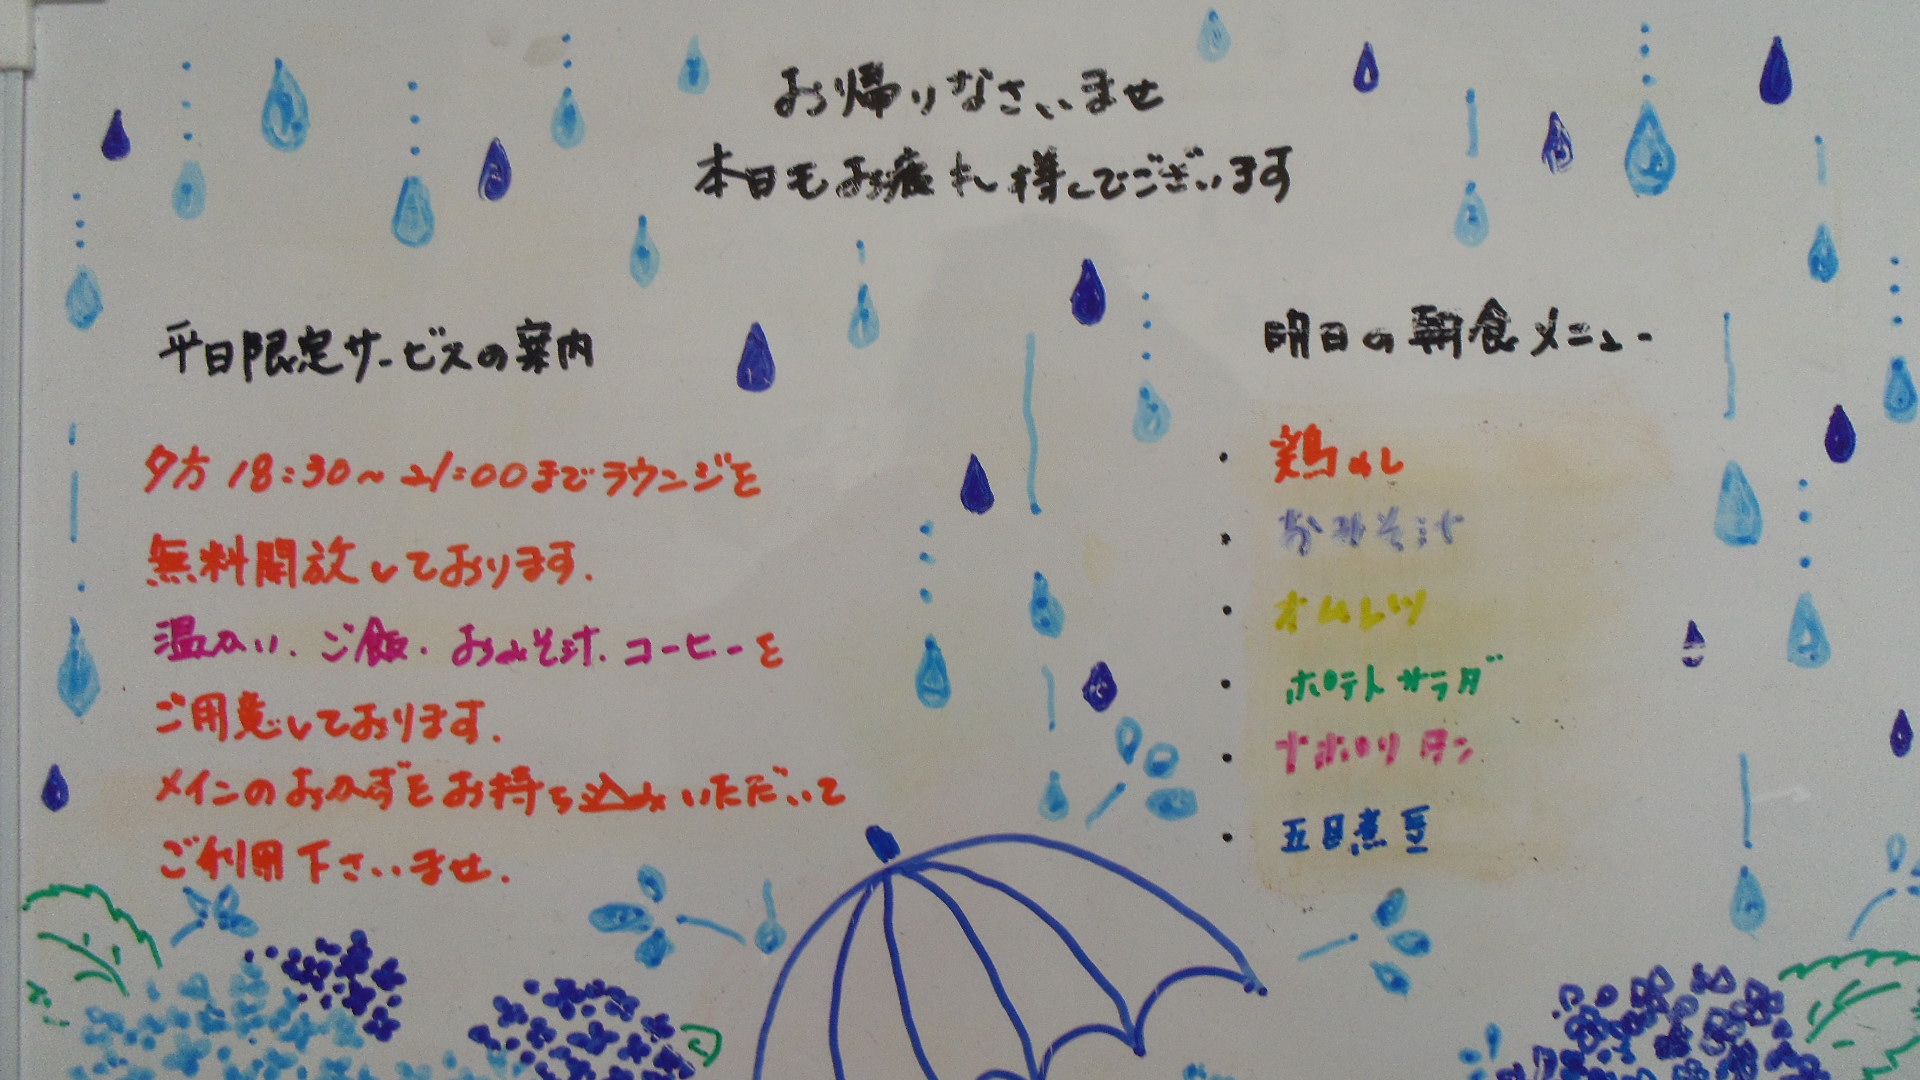 お帰りなさいませ
本日もお疲れ様でございます
平日限定サービスの案内
夕方18:30～21:00までラウンジを
無料開放しております.
温かい.ご飯.おみそ汁.コーヒーを
ご用意しております.
メインのおかずをお持ち込みいただいて
ご利用下さいませ.
明日の朝食メニュー
・鶏めし
・おみそ汁
・オムレツ
・ポテトサラダ
・ナポリタン
・五目煮豆